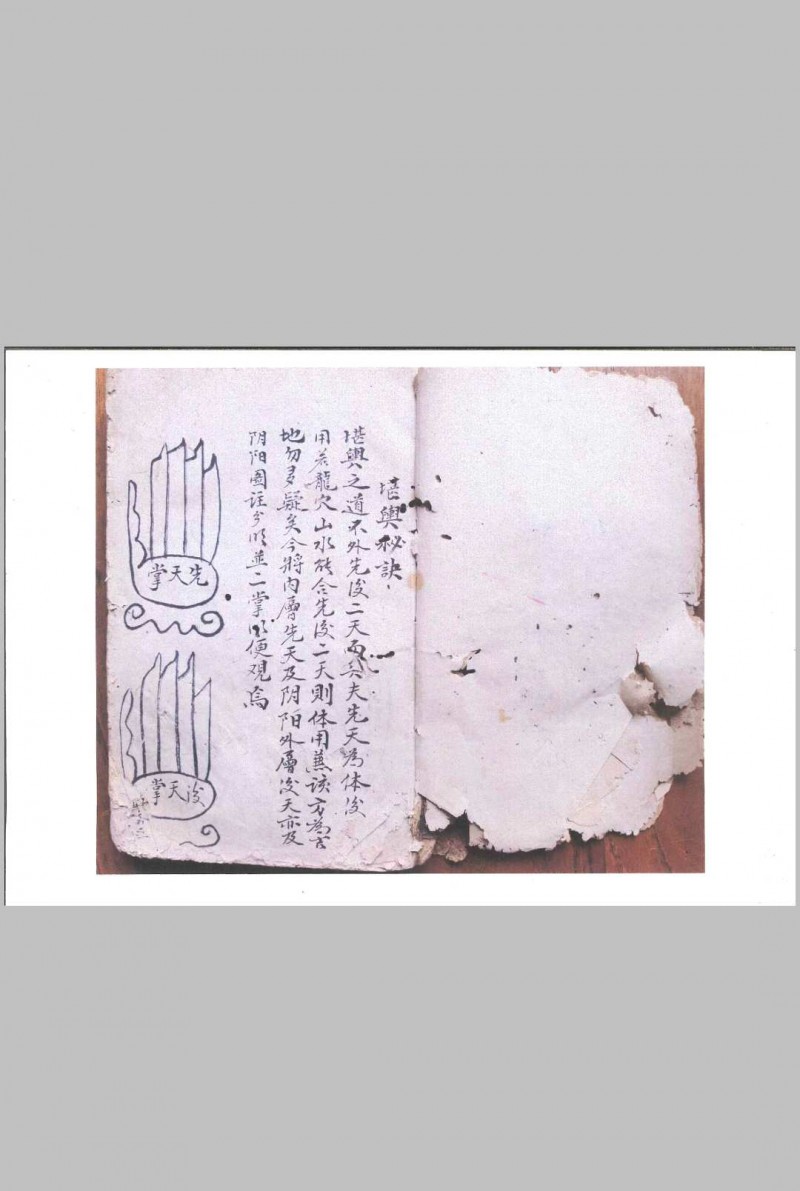 堪輿秘訣
堪輿之道不外先後二天而矣夫先天為体後
用若龍穴山水能合先後二天則体用兼該方為吉
地勿多疑矣今將內層先天及阴阳外層後天亦及
阴阳圖註分明並二掌以便观焉
先天掌
後天掌